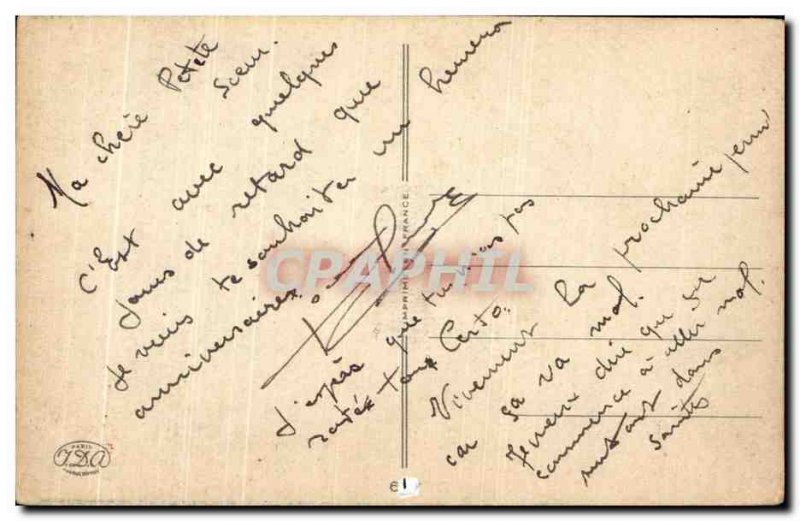 Ma chère Petete
Soeur.
C'Est avec quelques
jours de retard que
Je viens te souhaiter un heureux
anniversaires.
J'espès que tu n'as pas
ratée ton Certo.
Vivement La prochaine perm
car sa va mal.
Je veux dire que sa
commence à aller mal.
surtout dans
Saintes
IMPRIMÉ FRANCE
CPAPHIL
PARIS
I.D.A
6 1